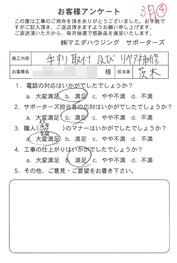 お客様アンケート
この度は工事のご用命を頂きありがとうございました。お手数で
すがご記入頂き、ご返送頂きますようお願い申し上げます。
ご返送頂いた方から、毎月抽選で感謝品を進呈いたします。
㈱マエダハウジング サポーターズ
施工内容 手すり取付 及び
お客様名 様 担当者 茂木
1．電話の対応はいかがでしたでしょうか？
a. 大変満足 b. 満足 c. やや不満 d. 不満
2．サポーターズ担当者の応対はいかがでしたでしょうか？
a. 大変満足 b. 満足 c. やや不満 d. 不満
3．職人( )のマナーはいかがでしたでしょうか？
a. 大変満足 b. 満足 c. やや不満 d. 不満
4．工事の仕上がりはいかがでしたでしょうか？
a. 大変満足 b. 満足 c. やや不満 d. 不満
5．その他、ご意見・ご要望をお書き下さい。